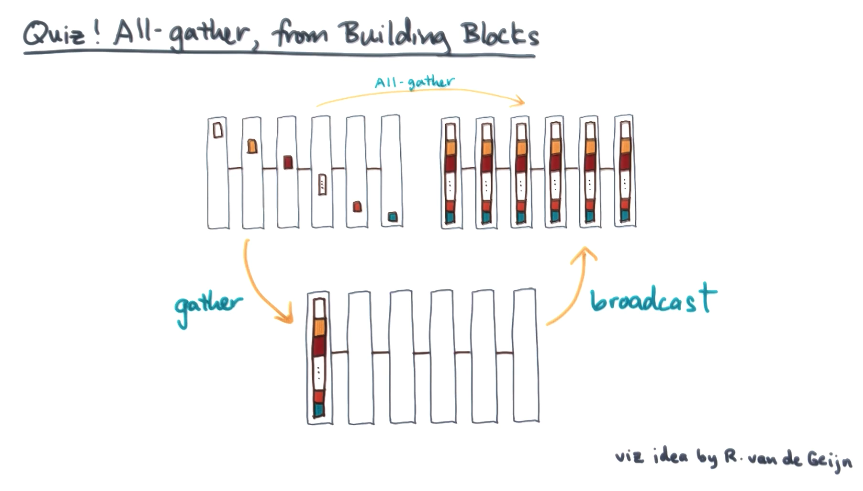 Quiz! All-gather, from Building Blocks
All-gather
gather
broadcast
viz idea by R. van de Geijn